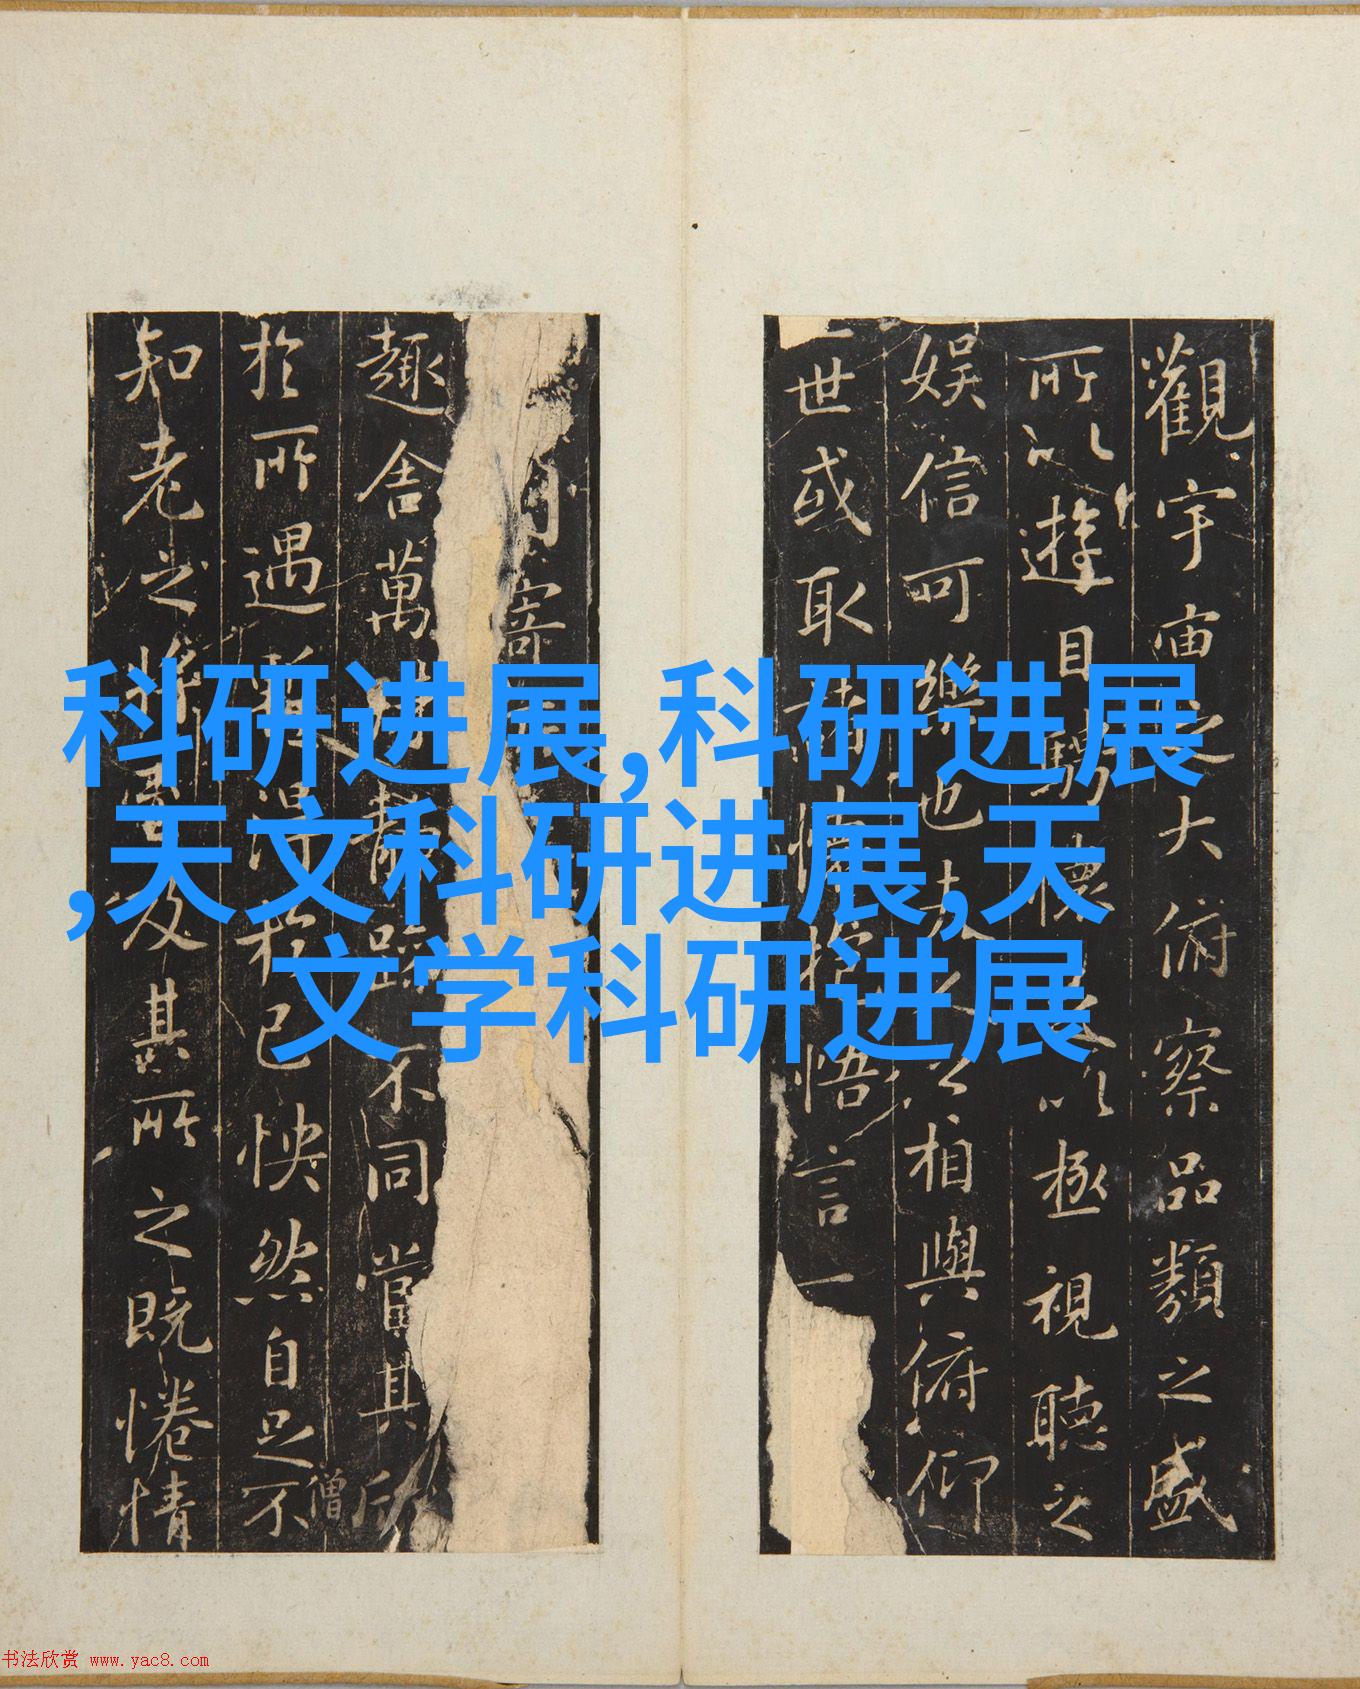 觀宇宙之大俯察品類之盛
所以遊目騁懷足以極視聽之
娛信可樂也夫人之相與俯仰
世或取諸懷抱悟言一
寄
趣舍萬殊靜躁不同當其欣
僧
於所遇暫得於己怏然自足不
知老之將至及其所之既惓情
科研进展,科研进展
,天文科研进展,天
文学科研进展
书法欣赏 www.yac8.com